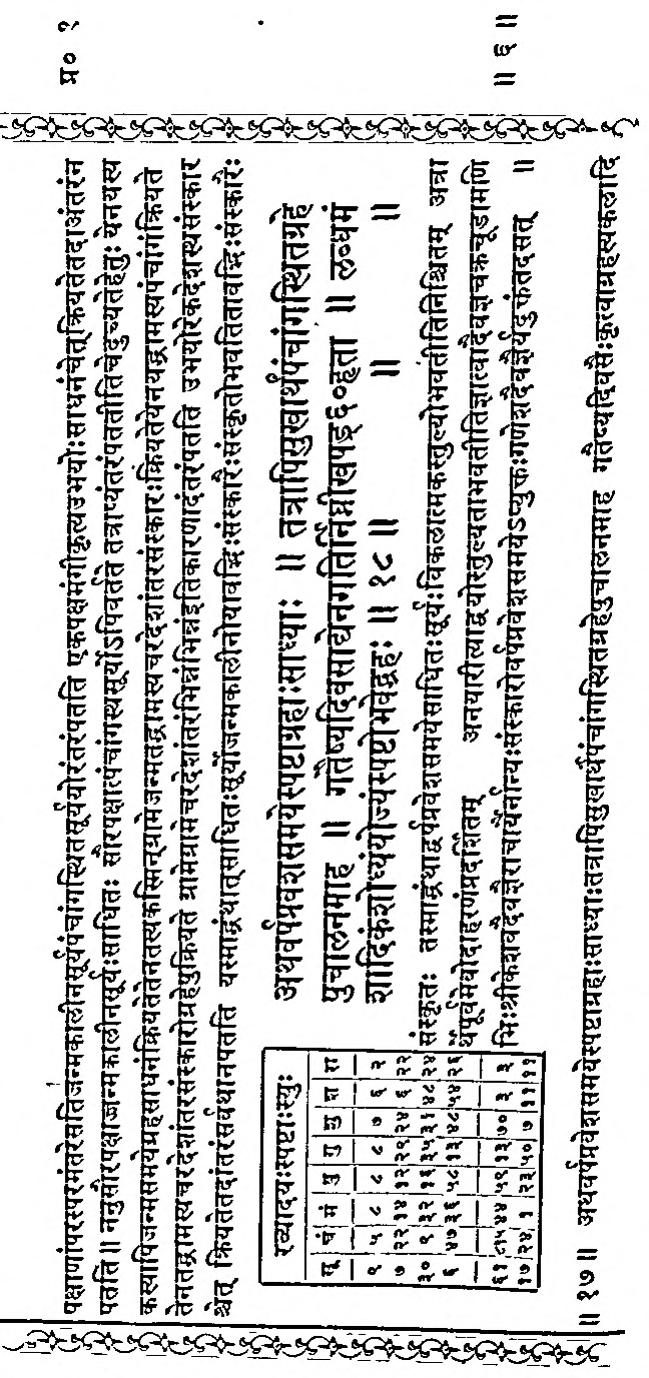 प्र० १
पक्षाणांपरस्परमंतरेसतिजन्मकालीनसूर्यपंचांगस्थितसूर्ययोरंतरंपतति एकपक्षमंगीकृत्यउभयोःसाधनंचेत्क्रियतेतदाअंतरंन
पतति ॥ ननुसौरपक्षाज्जन्मकालीनसूर्यःसाधितः सौरपक्षात्पंचांगस्थसूर्योऽपिवर्तते तत्राप्यंतरंपततीतिचेदुच्यतेहेतुः येनयस्य
कस्यापिजन्मसमयेग्रहसाधनंक्रियतेतेनतस्यकस्मिन्ग्रामेजन्मतद्ग्रामस्यचरदेशांतरसंस्कारःक्रियतेयेनयद्ग्रामस्यपंचांगंक्रियते
तेनतद्ग्रामस्यचरदेशांतरसंस्कारोग्रहेषुक्रियते ग्रामेग्रामेचरदेशांतरंभिन्नंभिन्नंइतिकारणादंतरंपतति उभयोरेकदेशस्यसंस्कार
श्चेत् क्रियतेतदांतरंसर्वथानपतति यस्माद्ग्रंथात्साधितःसूर्योजन्मकालीनोयावद्भिःसंस्कारैःसंस्कृतोभवतितावद्भिःसंस्कारैः
रव्यादयःस्पष्टाःस्युः
सू चं मं बु गु शु श रा
९ ५ ८ ८ ८ ७ ६ २
७ २२ १४ १२ २९ २४ ६ २२
३० ९ ३२ १६ ३५ ३१ ४८ २४
६ ४७ ३६ ५८ १३ ४८ ५४ २६
६१ ८१५ ४४ ५९ १३ ७० ३ ३
१७ २४ १ २३ ५० ७ ११ ११
अथवर्षप्रवेशसमयेस्पष्टाग्रहाःसाध्याः ॥ तत्रापिसुखार्थंपंचांगस्थितग्रहे
षुचालनमाह ॥ गतैष्यदिवसाद्येनगतिर्निघ्नीखषड्६०हृता ॥ लब्धमं
शादिकंशोध्यंयोज्यंस्पष्टोभवेद्ग्रहः ॥ १८ ॥ ॥ ॥
संस्कृतः तस्माद्ग्रंथाद्वर्षप्रवेशसमयेसाधितःसूर्यःविकलात्मकस्तुल्योभवतीतिनिश्चितम् अत्रा
र्थेपूर्वमेवोदाहरणंप्रदर्शितम् अनयारीत्याद्वयोस्तुल्यताभवतीतिज्ञात्वादैवज्ञचक्रचूडामणि
भिःश्रीकेशवदैवज्ञैराचार्यैर्नान्यःसंस्कारोवर्षप्रवेशसमयेऽप्युक्तःगणेशदैवज्ञैर्यदुक्तंतदसत् ॥
॥ १७ ॥ अथवर्षप्रवेशसमयेस्पष्टाग्रहाःसाध्याःतत्रापिसुखार्थंपंचांगस्थितग्रहेषुचालनमाह गतैष्यदिवसैःकृत्वाग्रहस्यकलादि
॥ ६ ॥